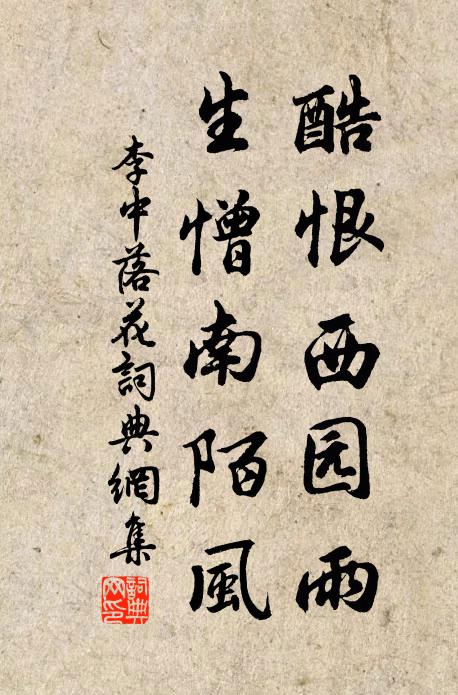 酷恨西园雨
生憎南陌風
李中落花詞典網集
詞典網印